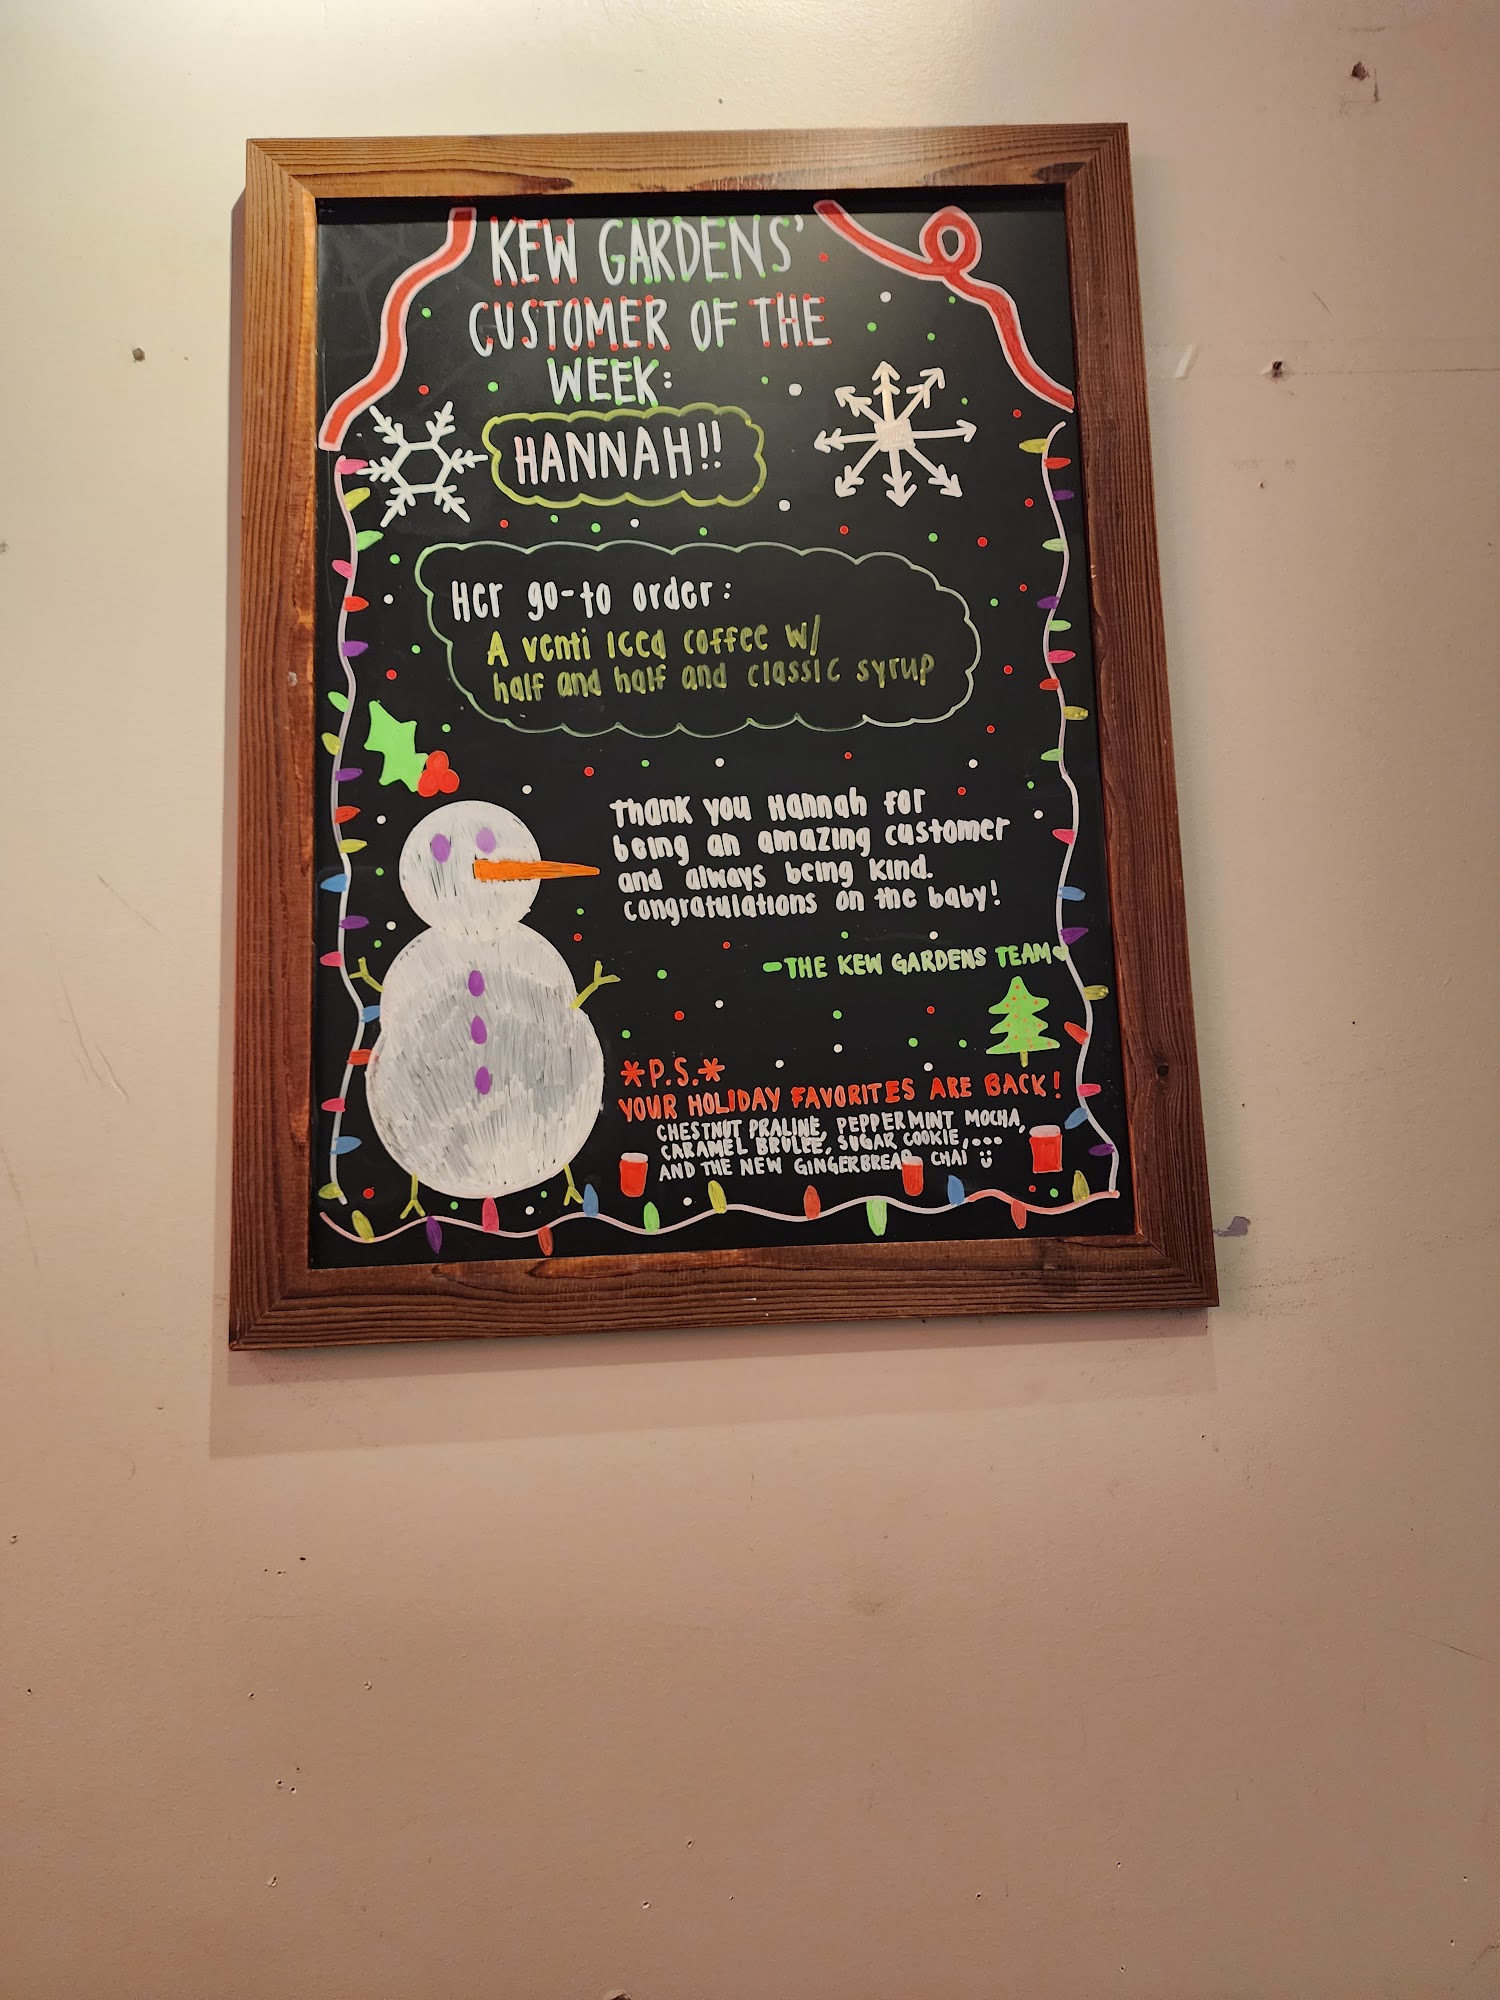 KEW GARDENS'
CUSTOMER OF THE
WEEK:
HANNAH!!
Her go-to order:
A venti Iced coffee w/
half and half and classic syrup
Thank you Hannah for
being an amazing customer
and always being kind.
Congratulations on the baby!
-THE KEW GARDENS TEAM
*P.S.*
YOUR HOLIDAY FAVORITES ARE BACK!
CHESTNUT PRALINE, PEPPERMINT MOCHA,
CARAMEL BRULEE, SUGAR COOKIE,...
AND THE NEW GINGERBREAD CHAI